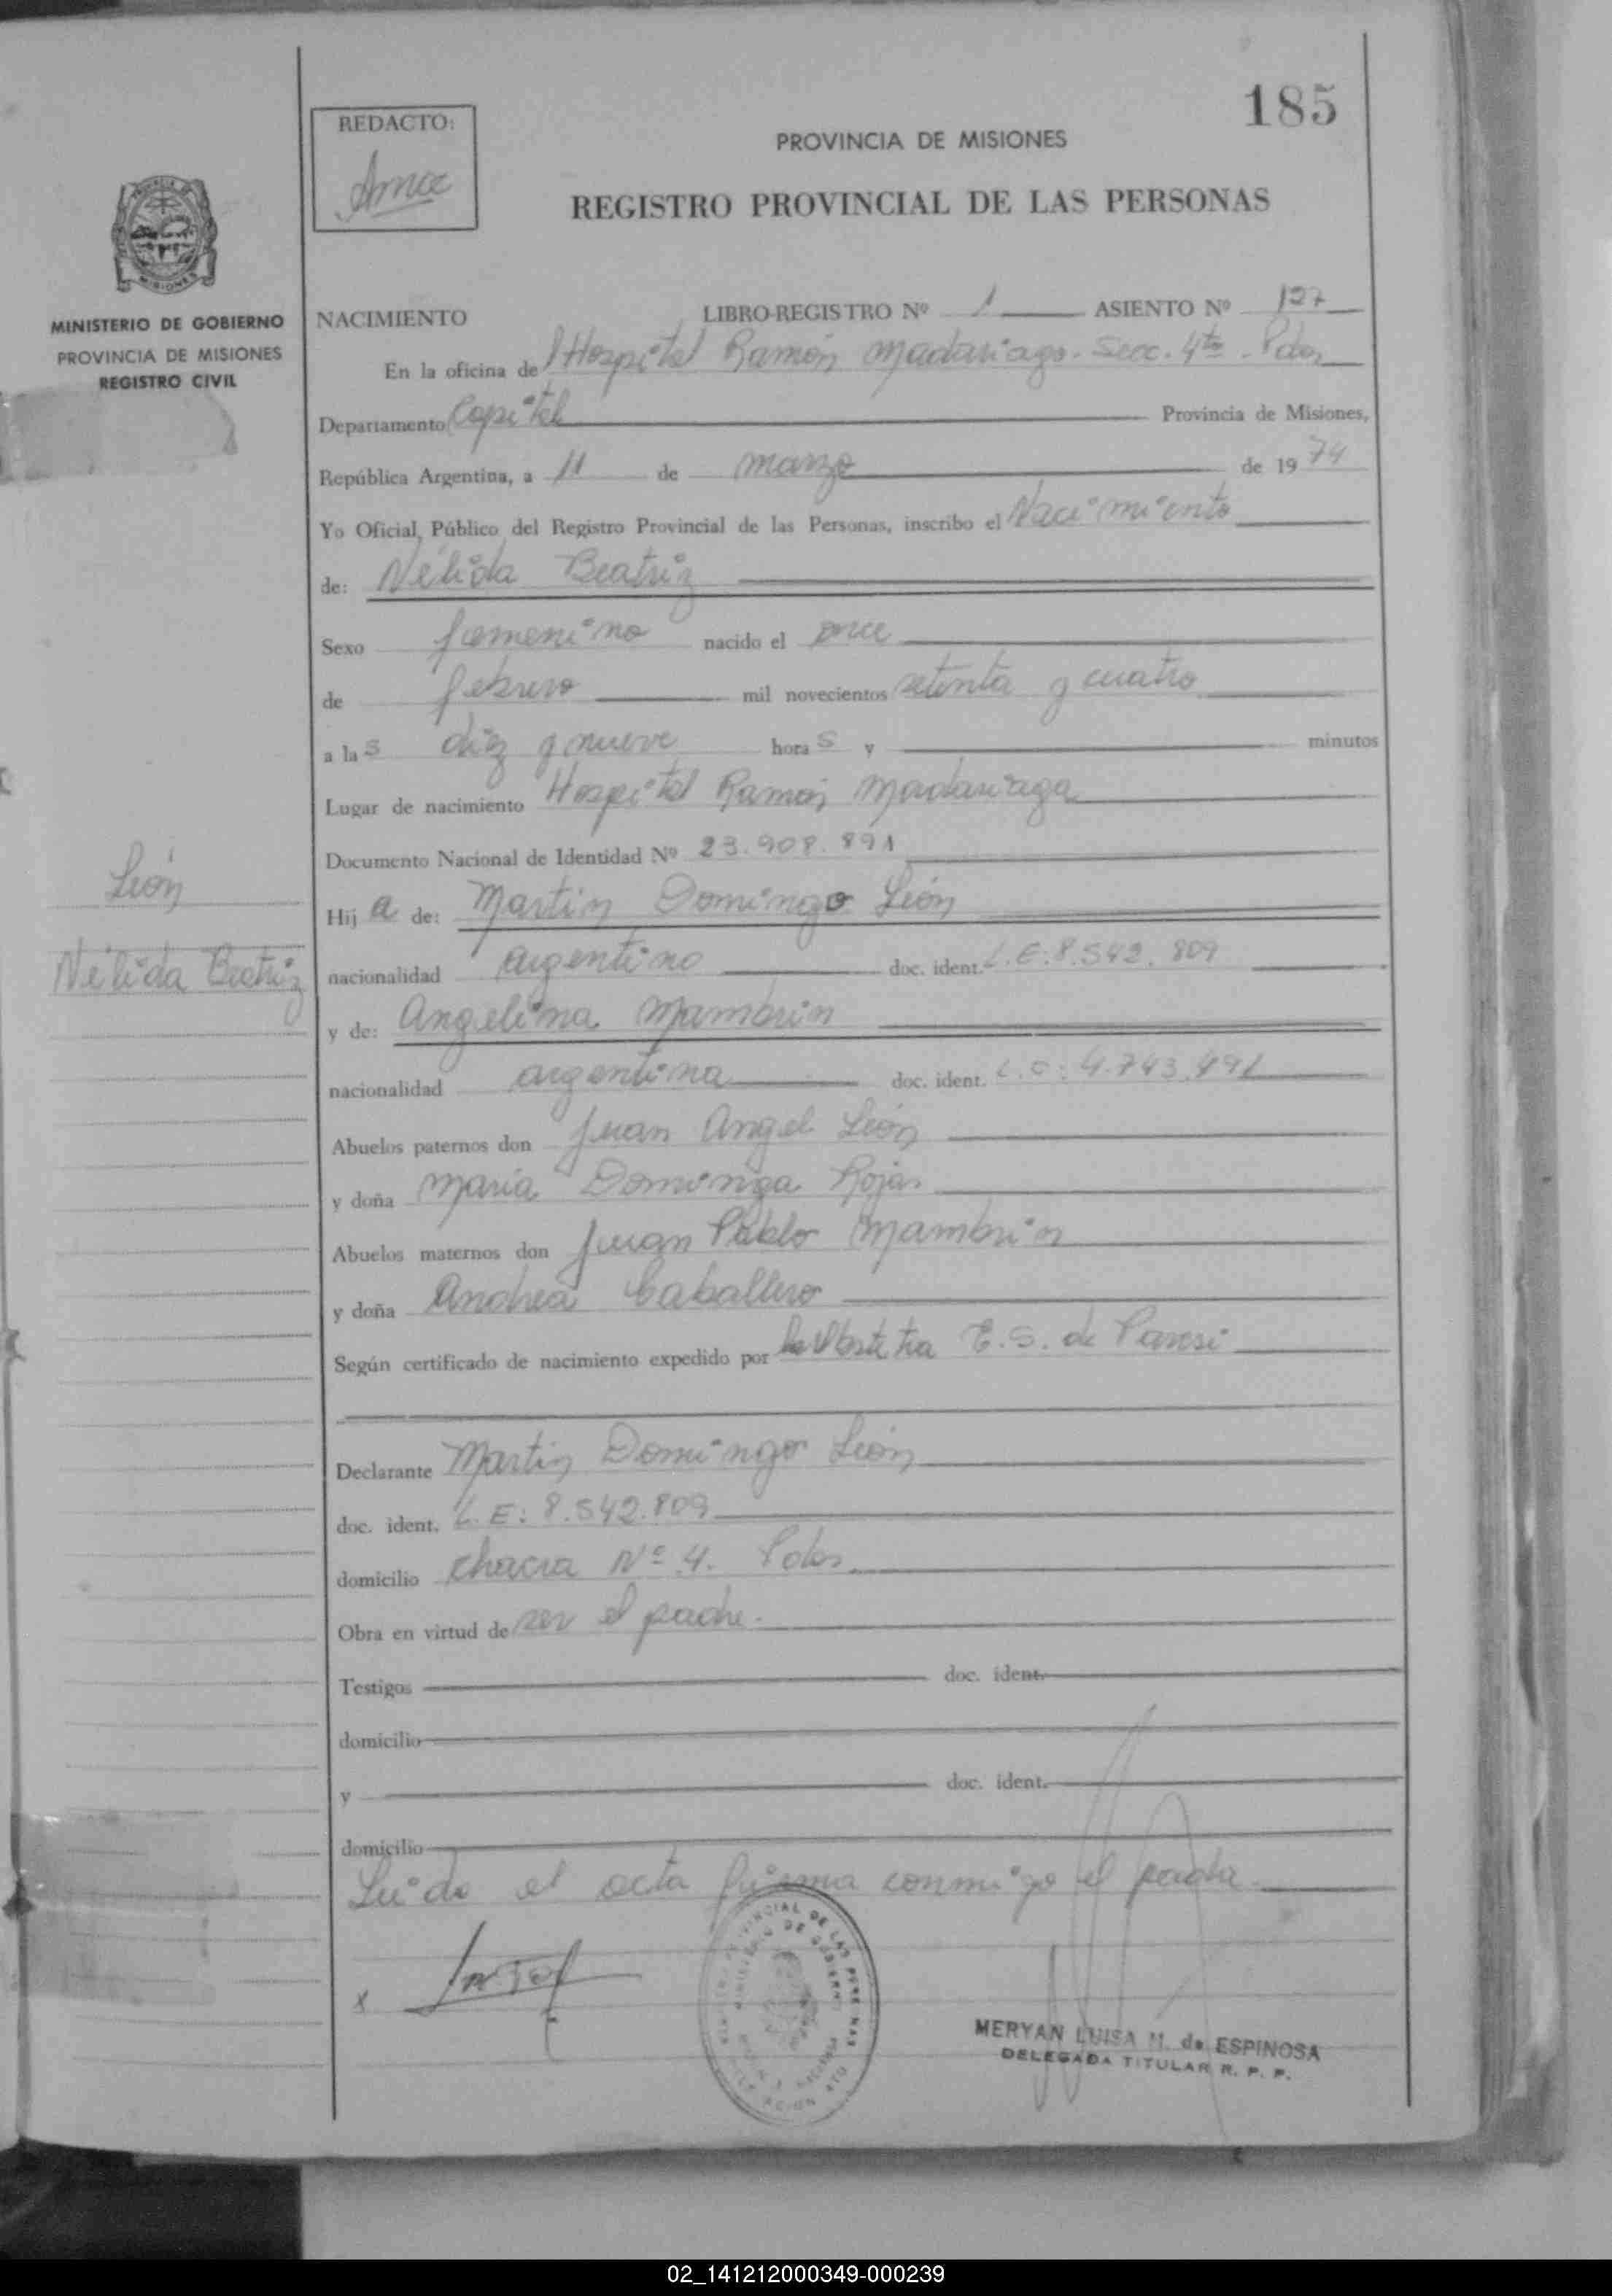 185
REDACTO:
PROVINCIA DE MISIONES
REGISTRO PROVINCIAL DE LAS PERSONAS
MINISTERIO DE GOBIERNO
PROVINCIA DE MISIONES
REGISTRO CIVIL
NACIMIENTO LIBRO-REGISTRO Nº 1 ASIENTO Nº 127
En la oficina de Hospital Ramón Madariaga. Secc. 4ta. Pdas
Departamento Capital Provincia de Misiones,
República Argentina, a 11 de marzo de 1974
Yo Oficial Público del Registro Provincial de las Personas, inscribo el Nacimiento
de: Nélida Beatriz
Sexo femenino nacido el once
de febrero mil novecientos setenta y cuatro
a las diez y nueve horas y minutos
Lugar de nacimiento Hospital Ramón Madariaga
Documento Nacional de Identidad Nº 23.908.891
León
Nélida Beatriz
Hija de: Martín Domingo León
nacionalidad argentino doc. ident. L.E:8.542.809
y de: Angelina Mambrin
nacionalidad argentina doc. ident. L.C: 4.743.491
Abuelos paternos don Juan Angel León
y doña María Dominga Rojas
Abuelos maternos don Juan Pablo Mambrin
y doña Andrea Caballero
Según certificado de nacimiento expedido por E.S. de
Declarante Martín Domingo León
doc. ident. L.E: 8.542.809
domicilio chacra Nº 4. Pdas.
Obra en virtud de ser el padre.
Testigos doc. ident.
domicilio
y doc. ident.
domicilio
Leido el acta firma conmigo el padre.
x
MERYAN LUISA M. de ESPINOSA
DELEGADA TITULAR R. P. P.
02_141212000349-000239